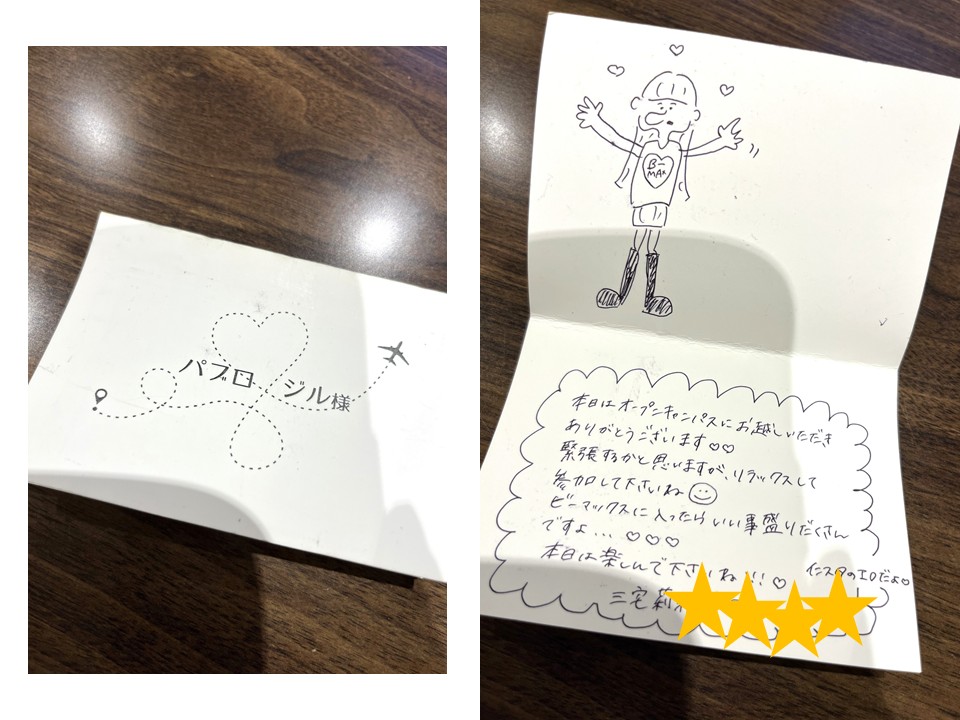 パブロ ジル様
B-
MAX
本日はオープンキャンパスにお越しいただき
ありがとうございます♡♡
緊張するかと思いますが、リラックスして
参加して下さいね
ビーマックスに入ったらいい事盛りだくさん
ですよ... ♡♡♡
本日は楽しんで下さいね!!♡
三宅